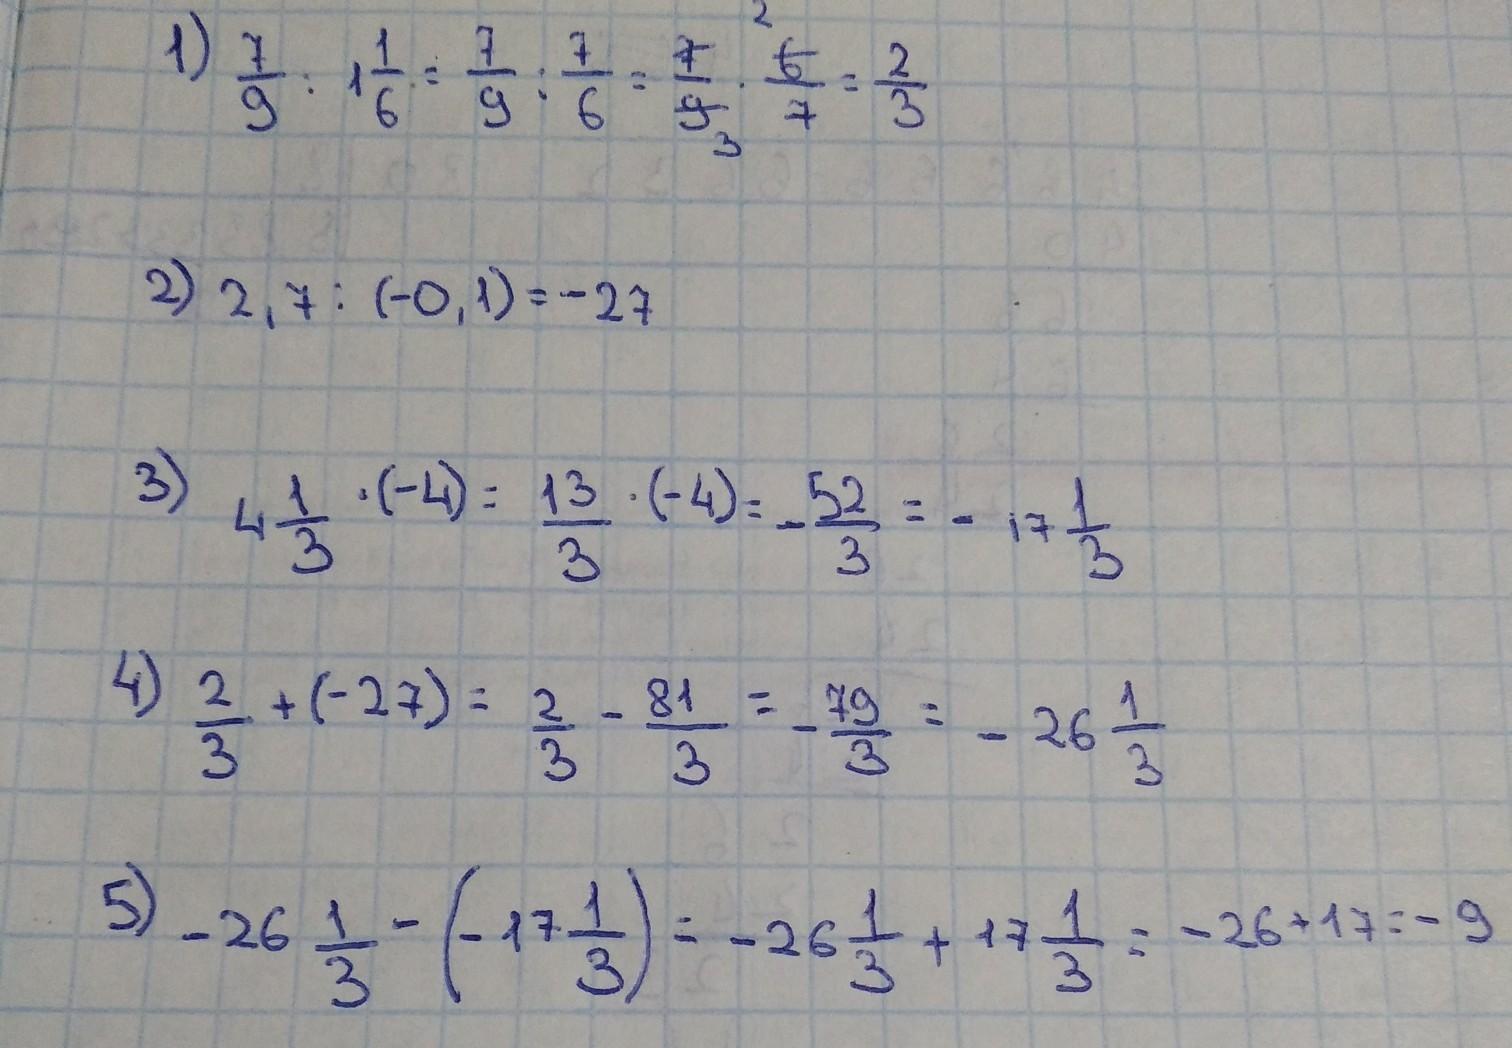 1) 7/9 : 1 1/6 = 7/9 : 7/6 = 7/9 3 · 2 6/7 = 2/3
2) 2,7 : (-0,1) = -27
3) 4 1/3 · (-4) = 13/3 · (-4) = - 52/3 = - 17 1/3
4) 2/3 + (-27) = 2/3 - 81/3 = - 79/3 = - 26 1/3
5) -26 1/3 - (-17 1/3) = -26 1/3 + 17 1/3 = -26+17=-9